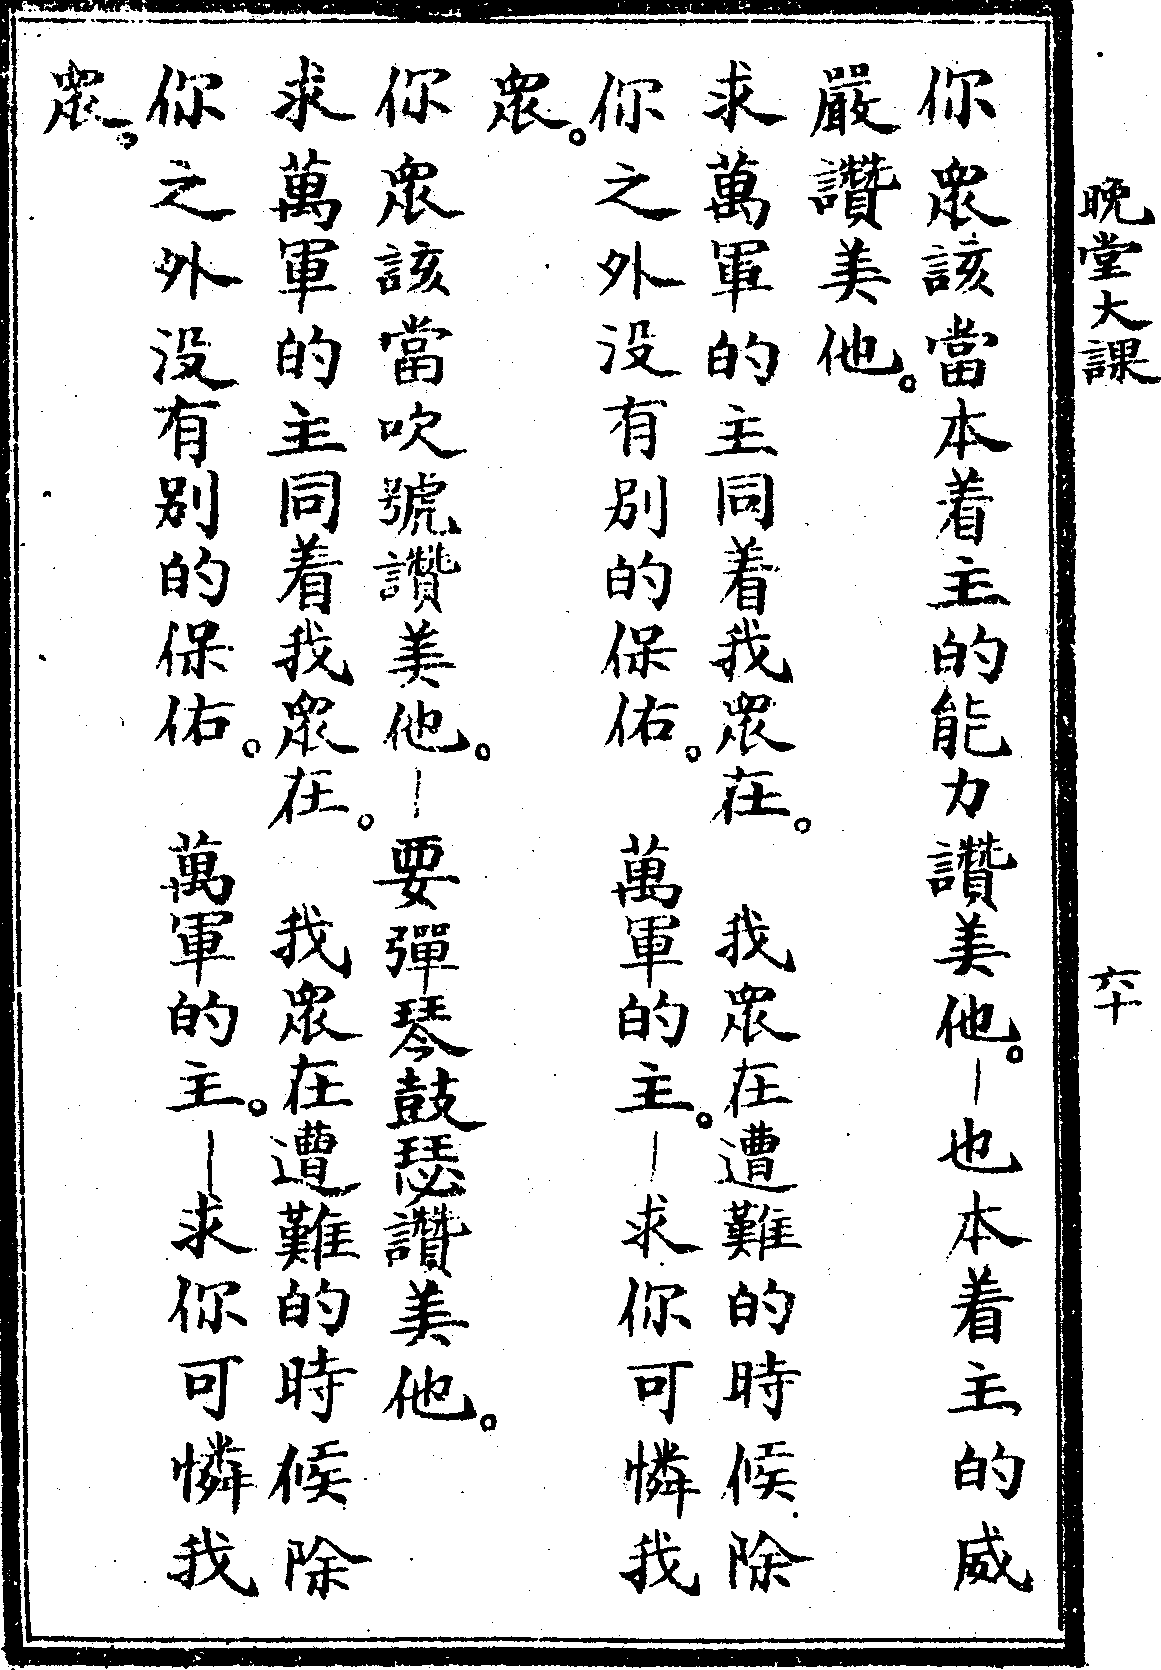 晚堂大課
六十
你眾該當本着主的能力讚美他。｜也本着主的威
嚴讚美他。
求萬軍的主同着我眾在。 我眾在遭難的時候除
你之外没有别的保佑。 萬軍的主。｜求你可憐我
眾。
你眾該當吹號讚美他。｜要彈琴鼓瑟讚美他。
求萬軍的主同着我眾在。 我眾在遭難的時候除
你之外没有别的保佑。 萬軍的主。｜求你可憐我
眾。